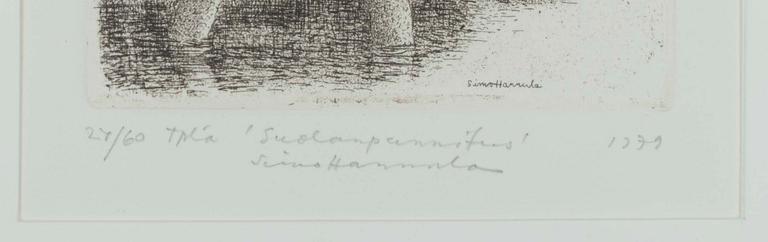 SimoHannula
27/60 Tpl'a 'Suolanpunnitus' 1979
SimoHannula